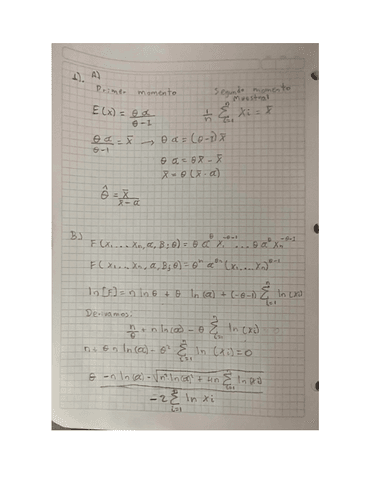 1). A)
Primer momento
Segundo momento
Muestral
E(x) = θa/θ-1
1/n Σ_{i=1}^{n} xi = x̄
θa/θ-1 = x̄ → θa = (θ-1) x̄
θa = θx̄ - x̄
x̄ = θ(x̄ - a)
θ̂ = x̄/x̄-a
B)
F(x1...xn, a, B; θ) = θ a^θ x^-θ-1 ... θ a^θ xn^-θ-1
F(x1...xn, a, B; θ) = θ^n a^θn (x1...xn)^-θ-1
ln[F] = n ln θ + θ ln(a) + (-θ-1) Σ_{i=1}^{n} ln(xi)
Derivamos:
n/θ + n ln(a) - θ Σ_{i=1}^{n} ln(xi)
n = θ n ln(a) - θ² Σ_{i=1}^{n} ln(xi) = 0
θ -n ln(a) - √n² ln(a)² + 4n Σ_{i=1}^{n} ln(xi)
-2 Σ_{i=1}^{n} ln xi